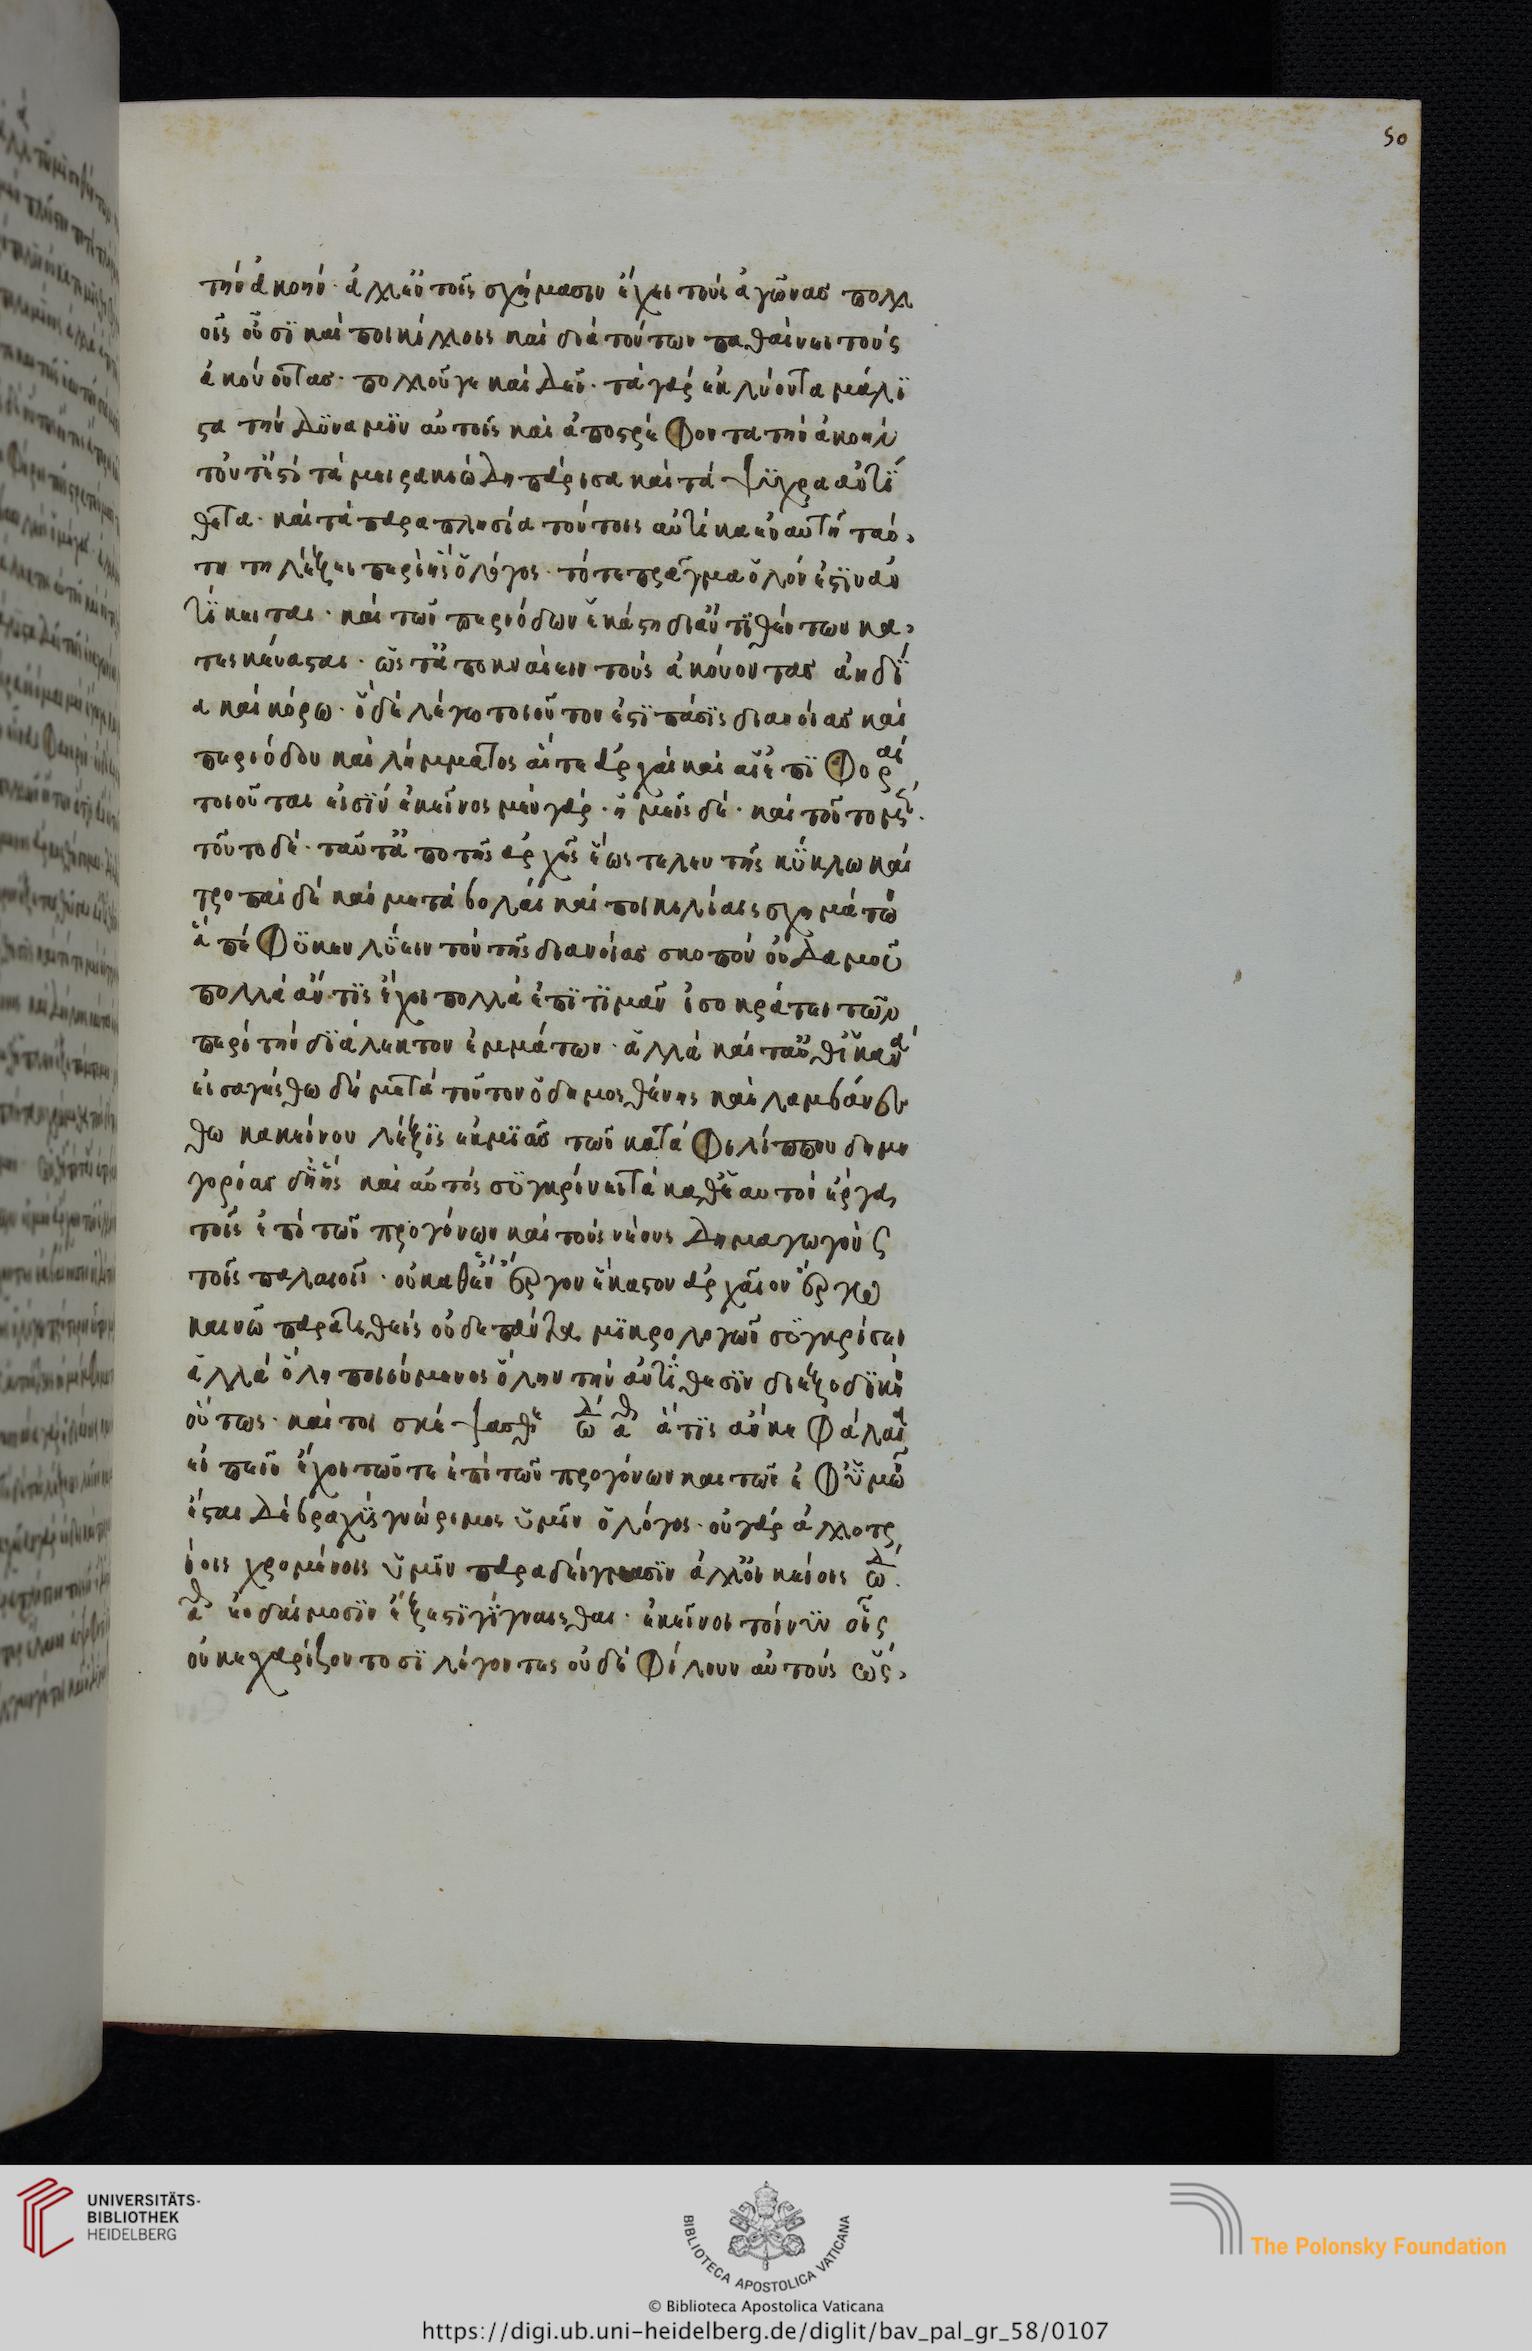 50
τὴν ἀκοήν· ἀλλ' ἐν τοῖς σχήμασιν ἔχει τοὺς ἀγῶνας πολλ
οῖς οὖσι καὶ ποικίλλοις καὶ διὰ τούτων παθαίνει τοὺς
ἀκούοντας· πολλοῦ γε καὶ δεῖ· τὰ γὰρ ἐκλύοντα μάλι
στα τὴν δύναμιν αὐτοῖς καὶ ἀποστρέφοντα τὴν ἀκοήν
τοῦτ' ἔστι τὰ μειρακιώδη πάρισα καὶ τὰ ψυχρα ἀντί
θετα· καὶ τὰ παραπλησία τούτοις αὐτίκα ἐν αὐτῆ ταύ
τη τη λέξει περὶ ἧς ὁ λόγος· τό τε πρᾶγμα ὅλον ἐστιν ἀν
τίκειται· καὶ τῶν περιόδων ἑκάστη δι' ἀντιθέτων κα
τεσκεύασται· ὥστ' ἀποκναίειν τοὺς ἀκούοντας ἀηδί
α καὶ κόρω· ὃ δὲ λέγω τοιοῦτον ἐστι πάσις διανοίας καὶ
περιόδου καὶ λήμματος αἵ τε ἀρχαὶ καὶ αἱ ἐπιφοραὶ
τοιοῦται εἰσὶν ἐκεῖνος μὲν γάρ· ἡμεῖς δὲ· καὶ τοῦτο μὲν·
τοῦτο δὲ· ταῦτα ἀπο τῆς ἀρχῆς ἕως τελευτῆς κύκλω καὶ
τροπαὶ δὲ καὶ μεταβολαὶ καὶ ποικιλίαις σχημάτων
ἃ πέφυκεν λύειν τὸν τῆς διανοίας σκοπὸν οὐδαμοῦ
πολλὰ ἄν τις ἔχοι πολλὰ ἐπιτιμᾶν ἰσοκράτει τῶν
περὶ τὴν διάλεκτον ἑρμάτων· ἀλλὰ καὶ ταῦθ' ἱκανά
εἰσαγέσθω δὴ μετὰ τοῦτον ὁ δημοσθένης καὶ λαμβανέσ
θω κακείνου λέξις ἐκ μιᾶς τῶν κατὰ φιλίππου δημη
γορίας δι' ἧς καὶ αὐτὸς συγκρίνει τὰ καθ' ἑαυτον ἔργα
τοῖς ἐπὶ τῶν προγόνων καὶ τοὺς νέους δημαγωγοὺς
τοῖς παλαιοῖς· οὐ καθ' ἓν ἔργον ἕκαστον ἀρχαῖον ἔργω
καινῶ παρατιθεὶς οὐδὲ πάντα μικρολογῶν συγκρίσει
ἀλλὰ ὅλη ποιούμενος ὅλην τὴν ἀντίθεσιν διεξοδικῆ
οὕτως· καίτοι σκέψασθε ὦ α ἅ τις ἂν κεφάλαια
εἰπεῖν ἔχοι τῶν τε ἐπὶ τῶν προγόνων και τῶν ἐφ' ὑμῶν
ἔσται δὲ βραχὺς γνώριμος ὑμῖν ὁ λόγος· οὐ γὰρ ἀλλοτρ
ίοις χρομένοις ὑμῖν παραδείγμασιν ἀλλ' οἰκείοις ὦ
α εὐδαίμοσιν ἔξεστι γίγνεσθαι· ἐκεῖνοι τοίνυν οἷς
οὐκ ἐχαρίζοντο σι λέγοντες οὐδὲ φίλουν αὐτοὺς ὥσ
UNIVERSITÄTS-
BIBLIOTHEK
HEIDELBERG
BIBLIOTECA APOSTOLICA VATICANA
The Polonsky Foundation
© Biblioteca Apostolica Vaticana
https://digi.ub.uni-heidelberg.de/diglit/bav_pal_gr_58/0107